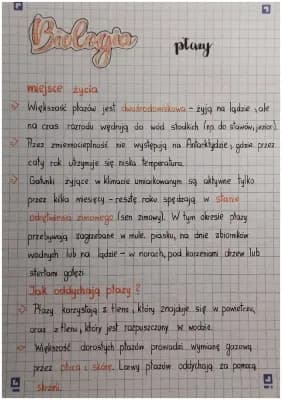 Biologia
płazy
miejsce życia
Większość płazów jest dwuśrodowiskowa - żyją na lądzie, ale
na czas rozrodu wędrują do wód słodkich (np. do stawów, jezior).
Przez zmiennocieplność nie występują na Antarktydzie, gdzie przez
cały rok utrzymuje się niska temperatura.
Gatunki żyjące w klimacie umiarkowanym są aktywne tylko
przez kilka miesięcy - resztę roku spędzają w stanie
odrętwienia zimowego (sen zimowy). W tym okresie płazy
przebywają zagrzebane w mule, piasku, na dnie zbiorników
wodnych lub na lądzie - w norach, pod korzeniami drzew lub
stertami gałęzi.
Jak oddychają płazy?
Płazy korzystają z tlenu, który znajduje się w powietrzu,
oraz z tlenu, który jest rozpuszczony w wodzie.
Większość dorosłych płazów prowadzi wymianę gazową
przez płuca i skórę. Larwy płazów oddychają za pomocą
skrzeli.